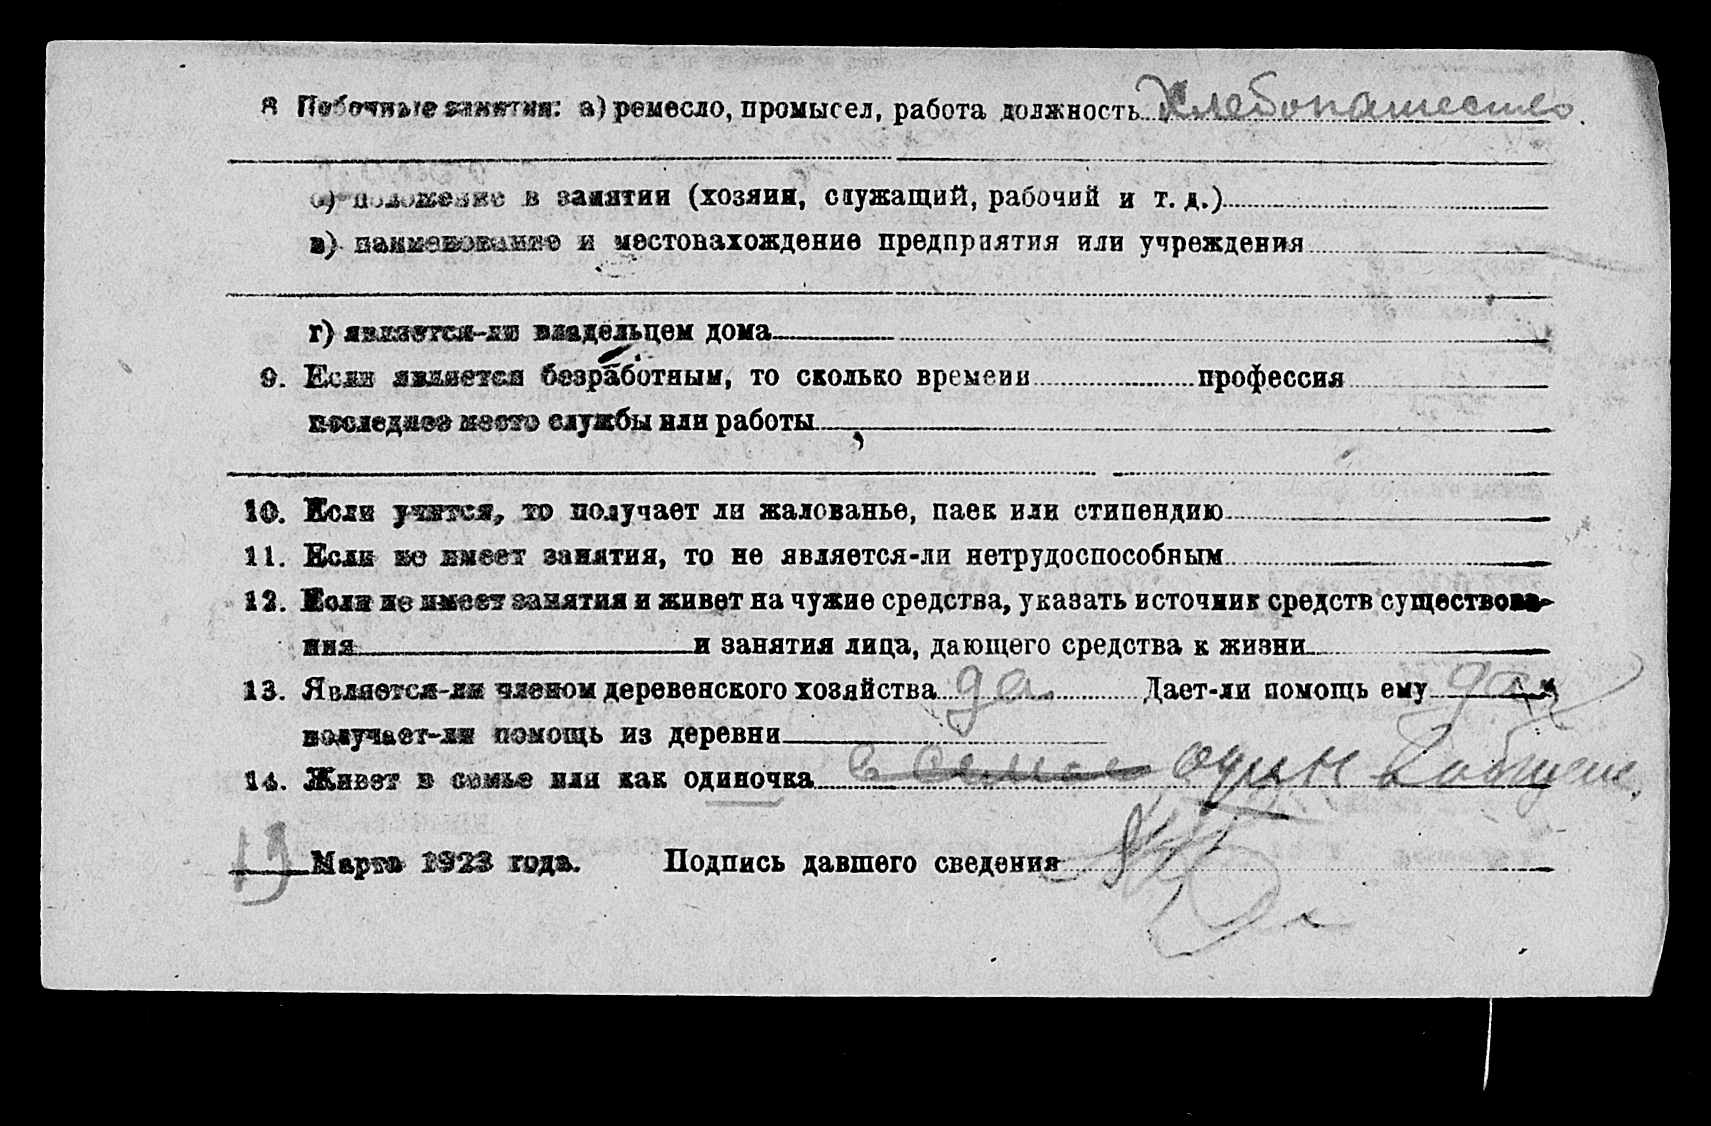 8 Побочные занятия: а) ремесло, промысел, работа должность Хлебопашество
б) положение в занятии (хозяин, служащий, рабочий и т. д.)
в) наименование и местонахождение предприятия или учреждения
г) является-ли владельцем дома
9. Если является безработным, то сколько времени профессия
последнее место службы или работы
10. Если учится, то получает ли жалованье, паек или стипендию
11. Если не имеет занятия, то не является-ли нетрудоспособным
12. Если не имеет занятия и живет на чужие средства, указать источник средств существова-
ния и занятия лица, дающего средства к жизни
13. Является-ли членом деревенского хозяйства да Дает-ли помощь ему да
получает-ли помощь из деревни
14. Живет в семье или как одиночка в семье один
13 Марта 1923 года. Подпись давшего сведения